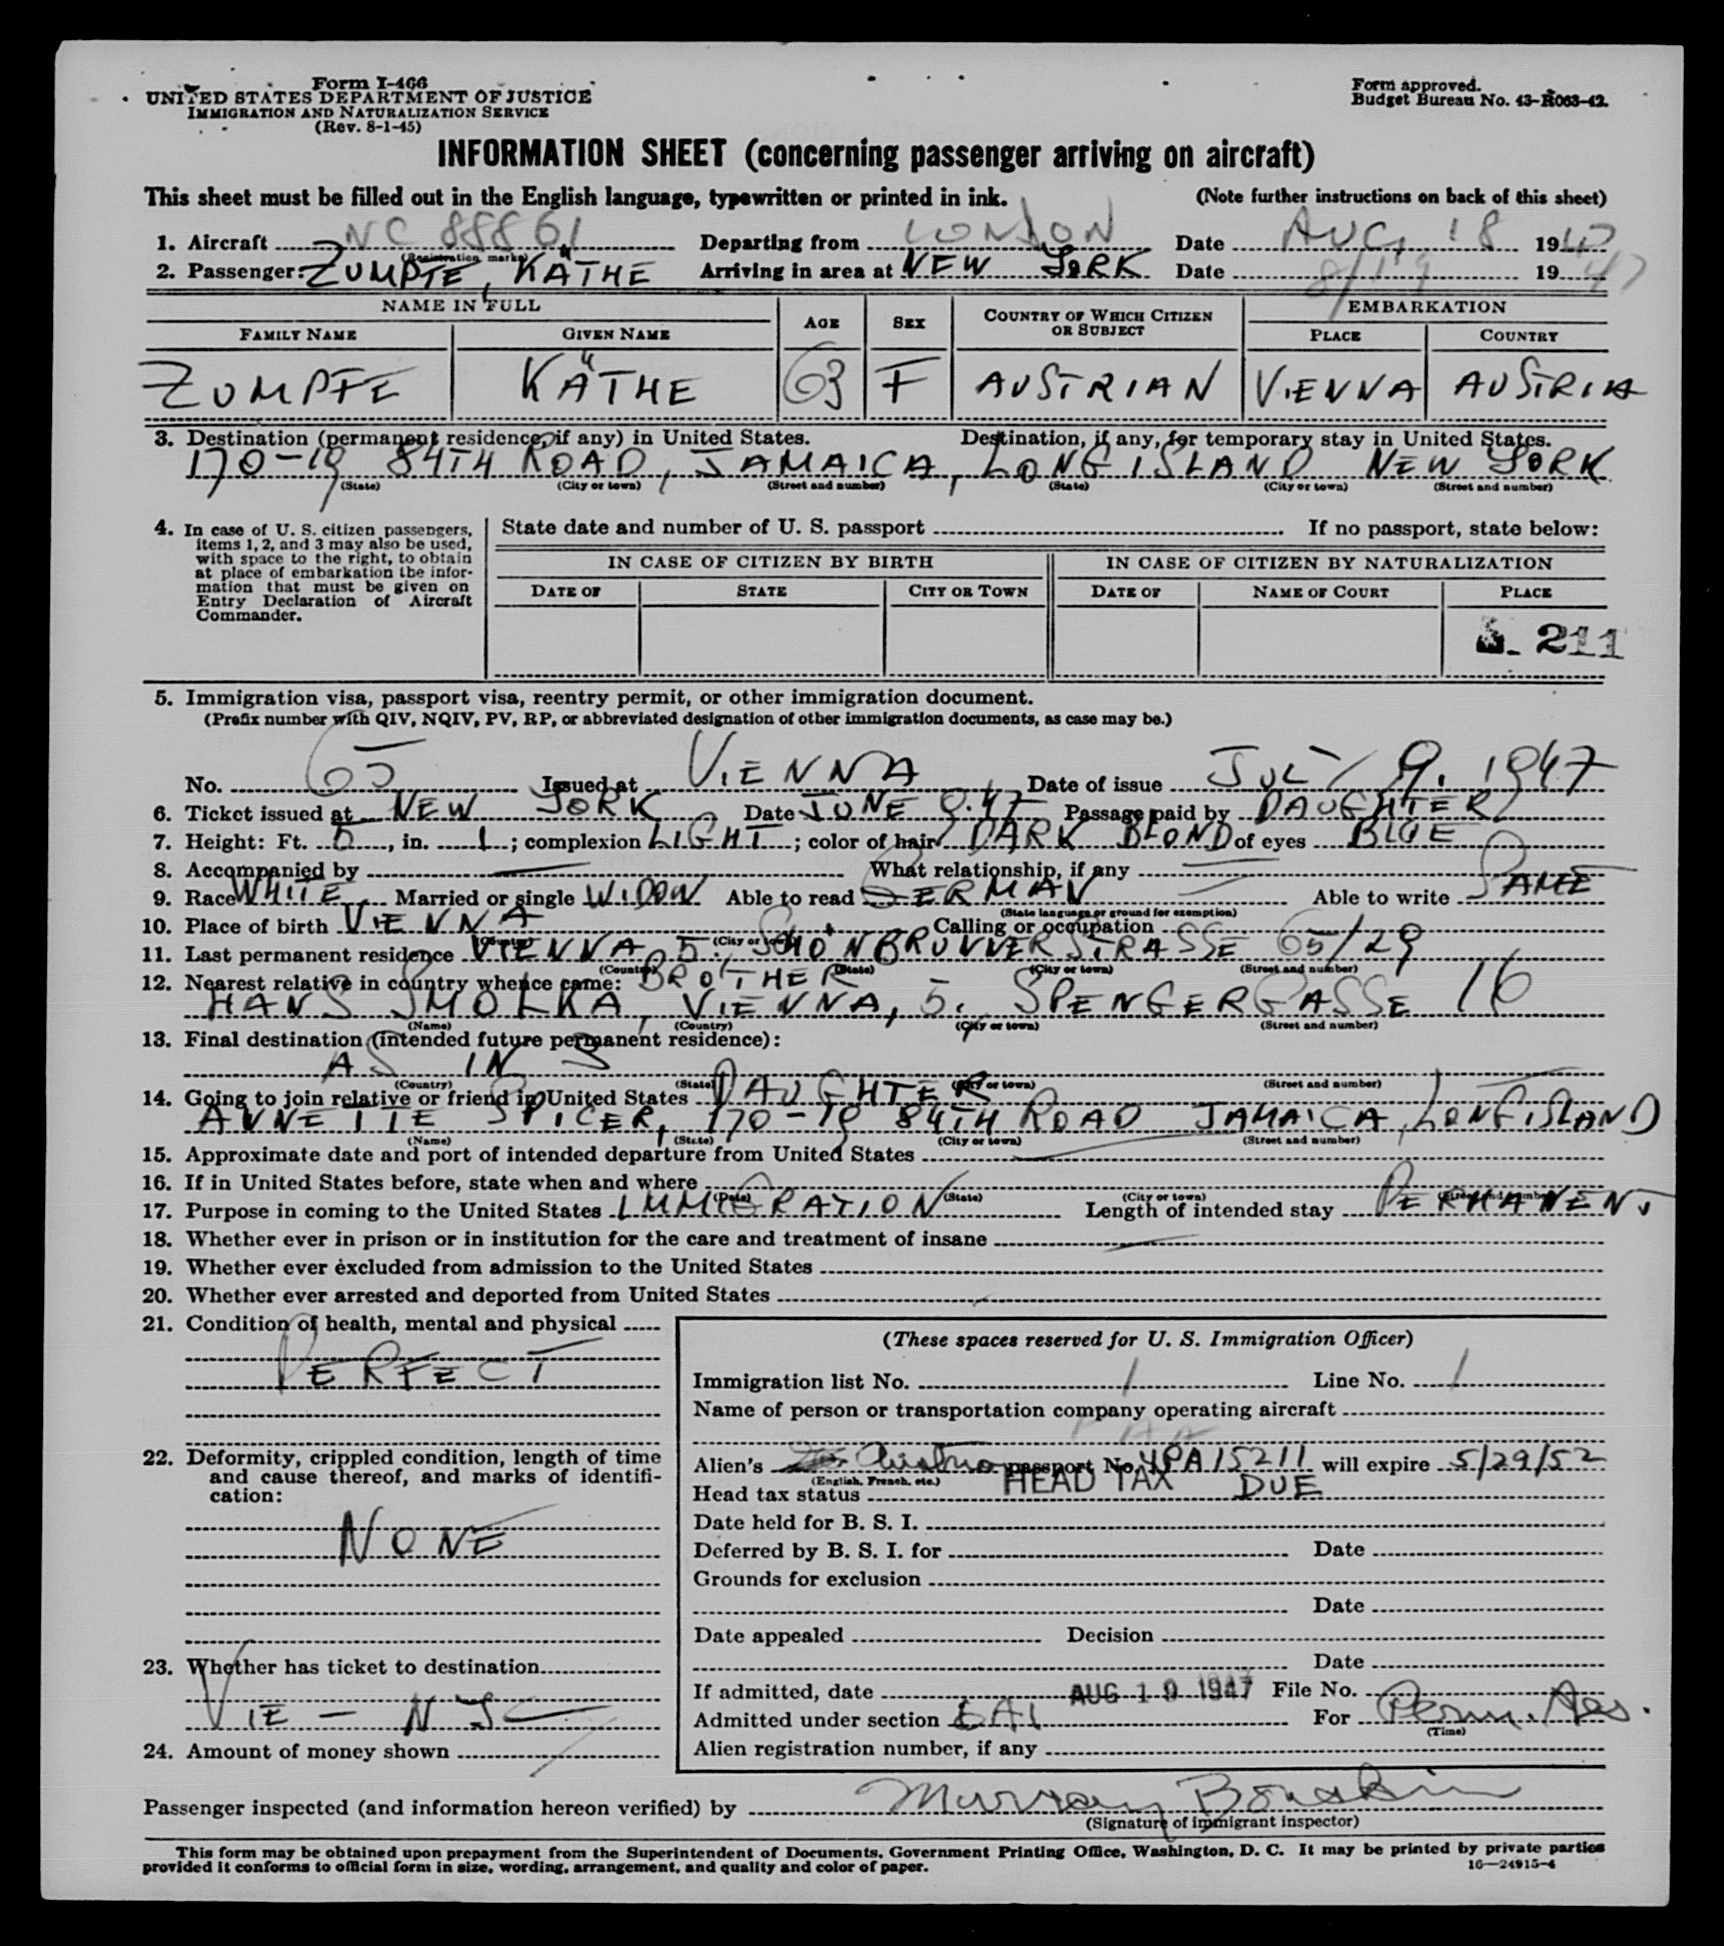 Form I-466
UNITED STATES DEPARTMENT OF JUSTICE
IMMIGRATION AND NATURALIZATION SERVICE
(Rev. 8-1-45)
Form approved.
Budget Bureau No. 43-R063-42.
INFORMATION SHEET (concerning passenger arriving on aircraft)
This sheet must be filled out in the English language, typewritten or printed in ink. (Note further instructions on back of this sheet)
1. Aircraft NC 88861 Departing from LONDON Date AUG, 18 1947
(Registration marks)
2. Passenger: ZUMPFE, KÄTHE Arriving in area at NEW YORK Date 8/19 1947
NAME IN FULL AGE SEX COUNTRY OF WHICH CITIZEN OR SUBJECT EMBARKATION
FAMILY NAME GIVEN NAME PLACE COUNTRY
ZUMPFE KÄTHE 63 F AUSTRIAN VIENNA AUSTRIA
3. Destination (permanent residence, if any) in United States. Destination, if any, for temporary stay in United States.
170-19 84TH ROAD, JAMAICA, LONG ISLAND NEW YORK
(State) (City or town) (Street and number) (State) (City or town) (Street and number)
4. In case of U. S. citizen passengers,
items 1, 2, and 3 may also be used,
with space to the right, to obtain
at place of embarkation the infor-
mation that must be given on
Entry Declaration of Aircraft
Commander.
State date and number of U. S. passport If no passport, state below:
IN CASE OF CITIZEN BY BIRTH IN CASE OF CITIZEN BY NATURALIZATION
DATE OF STATE CITY OR TOWN DATE OF NAME OF COURT PLACE
211
5. Immigration visa, passport visa, reentry permit, or other immigration document.
(Prefix number with QIV, NQIV, PV, RP, or abbreviated designation of other immigration documents, as case may be.)
No. 65 Issued at VIENNA Date of issue JULY 9. 1947
6. Ticket issued at NEW YORK Date JUNE 9.47 Passage paid by DAUGHTER
7. Height: Ft. 5, in. 1; complexion LIGHT; color of hair DARK BLOND of eyes BLUE
8. Accompanied by — What relationship, if any —
9. Race WHITE Married or single WIDOW Able to read GERMAN Able to write SAME
(State language or ground for exemption)
10. Place of birth VIENNA Calling or occupation —
(Country) (City or town)
11. Last permanent residence VIENNA 5., SCHÖNBRUNNER STRASSE 65/29
(Country) (State) (City or town) (Street and number)
12. Nearest relative in country whence came: BROTHER
HANS SMOLKA, VIENNA, 5, SPENGERGASSE 16
(Name) (Country) (City or town) (Street and number)
13. Final destination (intended future permanent residence):
AS IN 3
(Country) (State) (City or town) (Street and number)
14. Going to join relative or friend in United States DAUGHTER
ANNETTE SPICER, 170-19 84TH ROAD JAMAICA, LONG ISLAND
(Name) (State) (City or town) (Street and number)
15. Approximate date and port of intended departure from United States —
16. If in United States before, state when and where
(Date) (State) (City or town) (Street and number)
17. Purpose in coming to the United States IMMIGRATION Length of intended stay PERMANENT
18. Whether ever in prison or in institution for the care and treatment of insane —
19. Whether ever excluded from admission to the United States
20. Whether ever arrested and deported from United States
21. Condition of health, mental and physical
PERFECT
22. Deformity, crippled condition, length of time
and cause thereof, and marks of identifi-
cation:
NONE
23. Whether has ticket to destination
VIE - NYC
24. Amount of money shown
(These spaces reserved for U. S. Immigration Officer)
Immigration list No. 1 Line No. 1
Name of person or transportation company operating aircraft
PAA
Alien's Austria passport No. 4PA15211 will expire 5/29/52
(English, French, etc.)
Head tax status HEAD TAX DUE
Date held for B. S. I.
Deferred by B. S. I. for Date
Grounds for exclusion
Date
Date appealed Decision
Date
If admitted, date AUG 19 1947 File No.
Admitted under section 6A1 For Perm. Res.
(Time)
Alien registration number, if any
Passenger inspected (and information hereon verified) by Murray
(Signature of immigrant inspector)
This form may be obtained upon prepayment from the Superintendent of Documents, Government Printing Office, Washington, D. C. It may be printed by private parties
provided it conforms to official form in size, wording, arrangement, and quality and color of paper. 16—24915-4